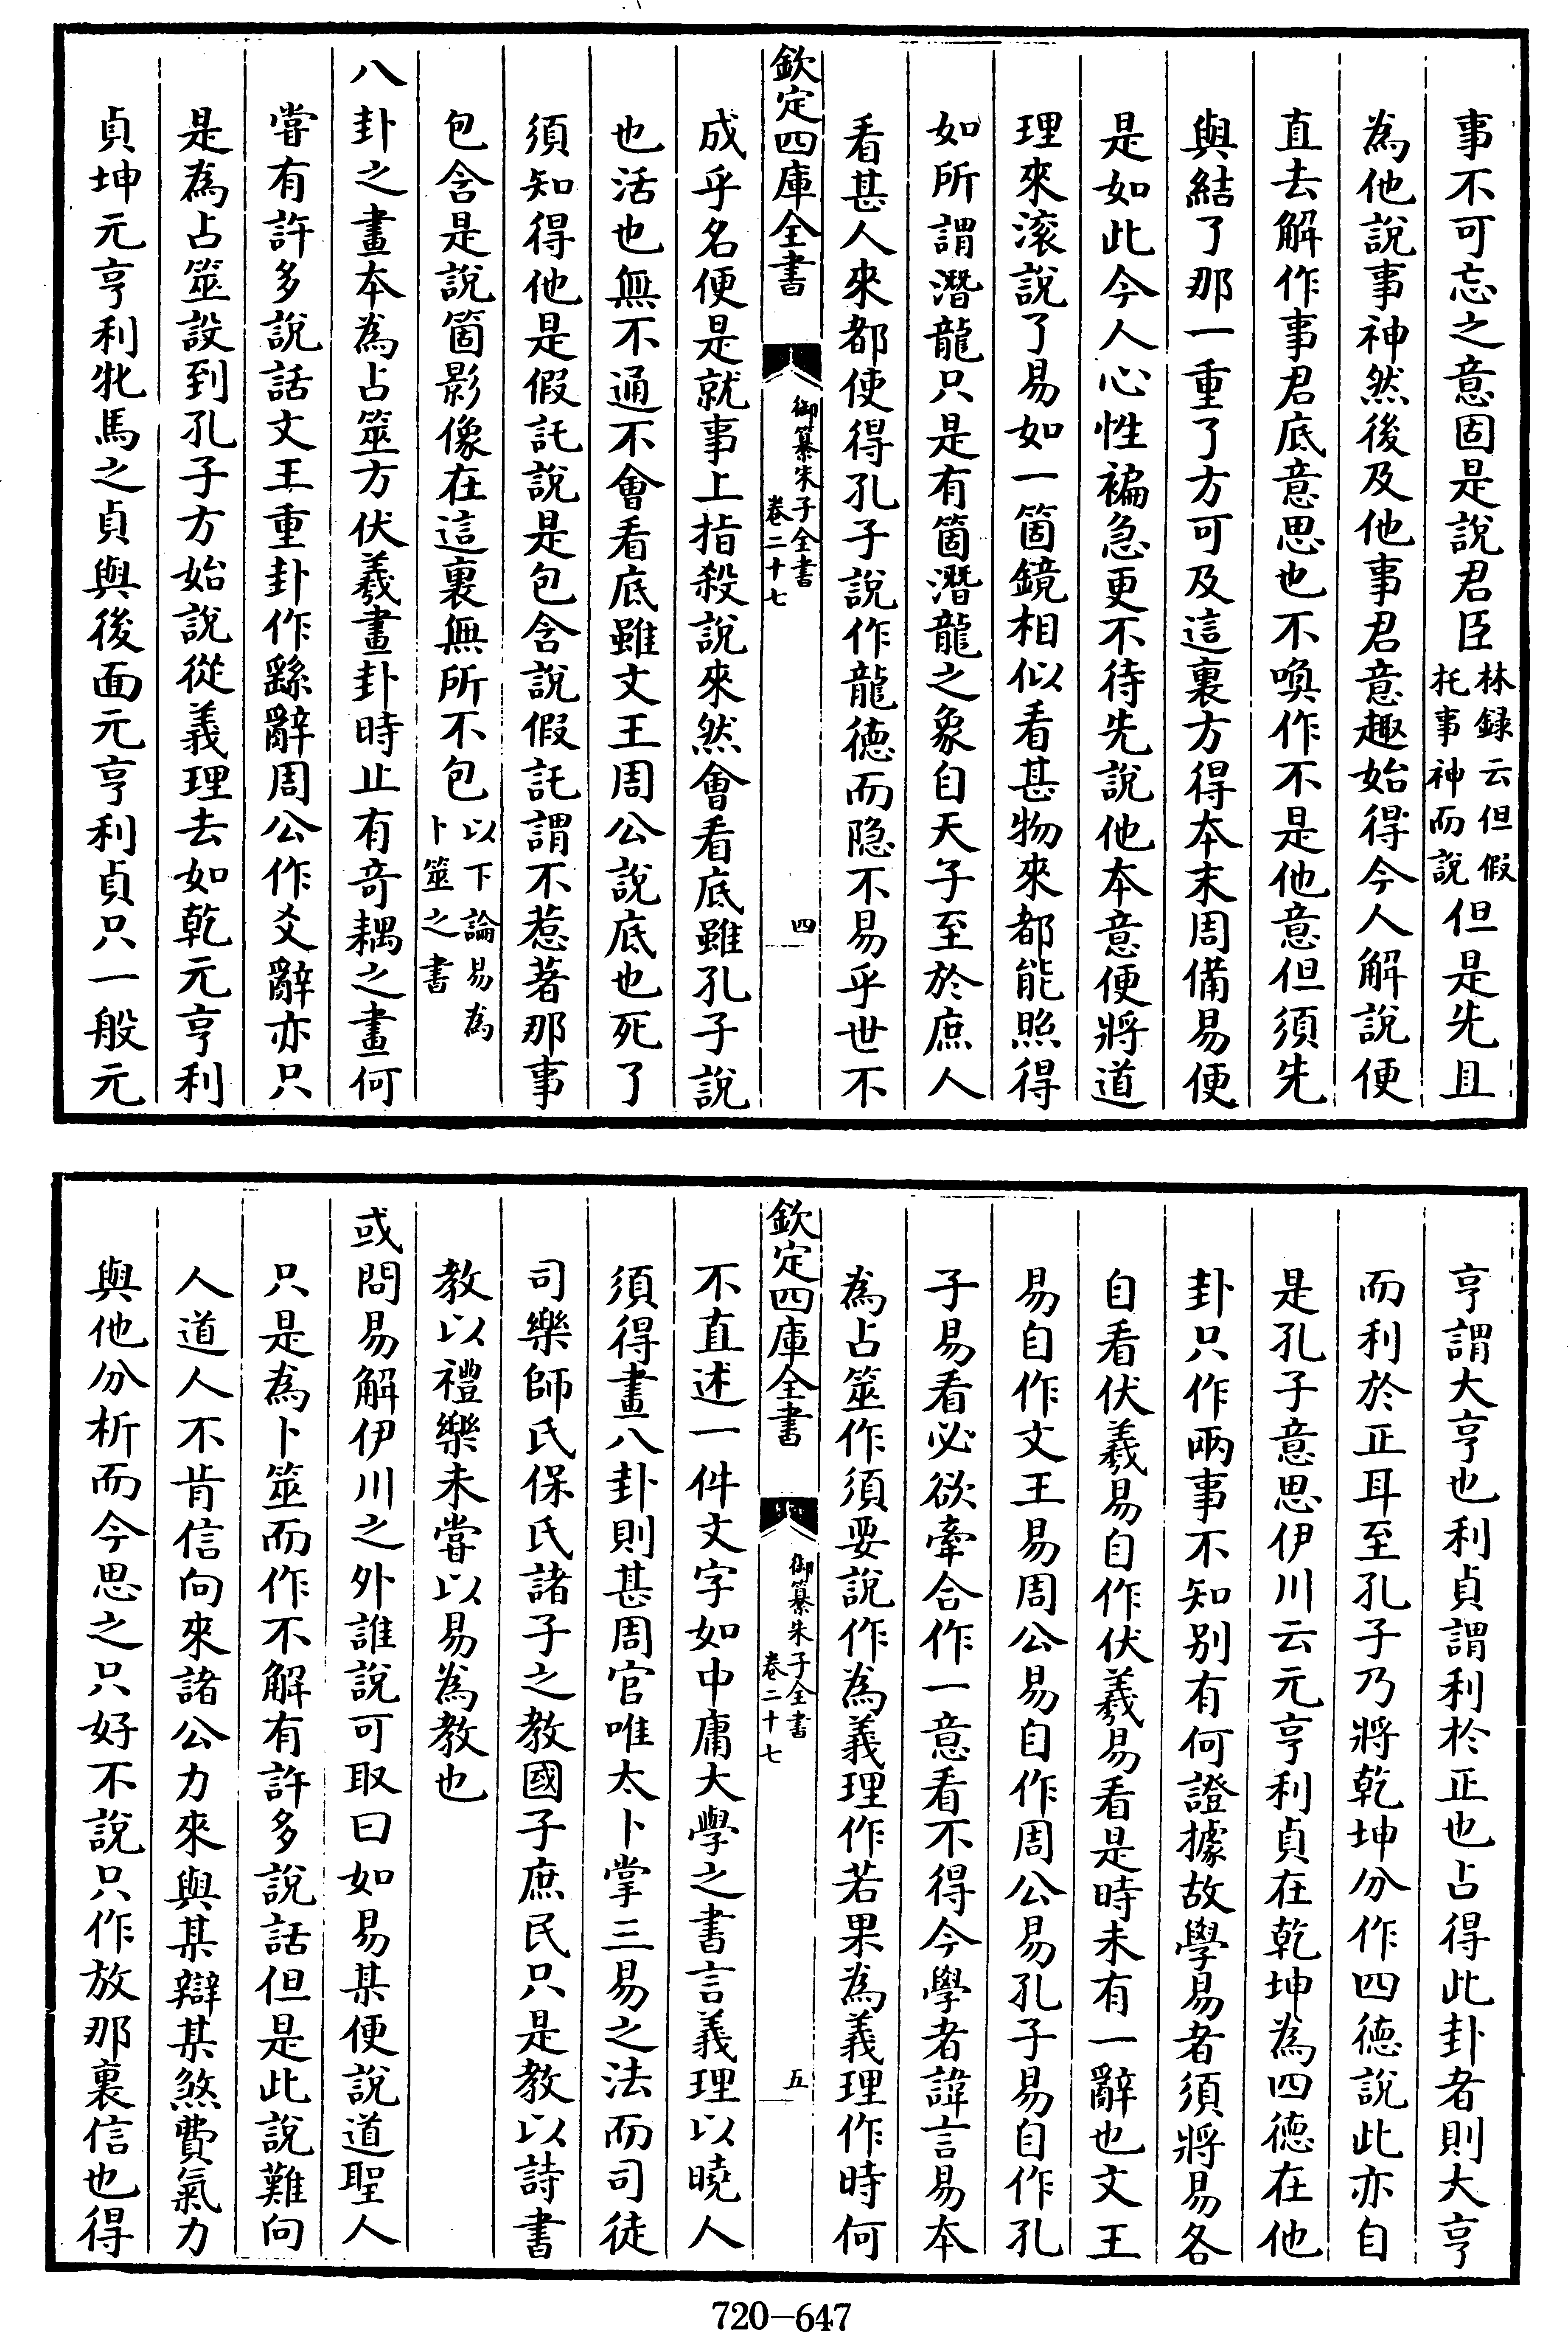 事不可忘之意固是說君臣林録云但假托事神而說但是先且
為他說事神然後及他事君意趣始得今人解說便
直去解作事君底意思也不喚作不是他意但須先
與結了那一重了方可及這裏方得本末周備易便
是如此今人心性褊急更不待先說他本意便將道
理來滚說了易如一箇鏡相似看甚物來都能照得
如所謂潛龍只是有箇潛龍之象自天子至於庶人
看甚人來都使得孔子說作龍徳而隐不易乎世不
欽定四庫全書
御纂朱子全書
卷二十七
四
成乎名便是就事上指殺說來然會看底雖孔子說
也活也無不通不會看底雖文王周公說底也死了
須知得他是假託說是包含說假託謂不惹著那事
包含是說箇影像在這裏無所不包以下論易為卜筮之書
八卦之畫本為占筮方伏羲畫卦時止有竒耦之畫何
嘗有許多說話文王重卦作繇辭周公作爻辭亦只
是為占筮設到孔子方始說從義理去如乾元亨利
貞坤元亨利牝馬之貞與後面元亨利貞只一般元
亨謂大亨也利貞謂利於正也占得此卦者則大亨
而利於正耳至孔子乃將乾坤分作四徳說此亦自
是孔子意思伊川云元亨利貞在乾坤為四徳在他
卦只作兩事不知别有何證據故學易者須將易各
自看伏羲易自作伏羲易看是時未有一辭也文王
易自作文王易周公易自作周公易孔子易自作孔
子易看必欲牽合作一意看不得今學者諱言易本
為占筮作須要說作為義理作若果為義理作時何
欽定四庫全書
御纂朱子全書
卷二十七
五
不直述一件文字如中庸大學之書言義理以曉人
須得畫八卦則甚周官唯太卜掌三易之法而司徒
司樂師氏保氏諸子之教國子庶民只是教以詩書
教以禮樂未嘗以易為教也
或問易解伊川之外誰說可取曰如易某便說道聖人
只是為卜筮而作不解有許多說話但是此說難向
人道人不肯信向來諸公力來與某辯某煞費氣力
與他分析而今思之只好不說只作放那裏信也得
720-647